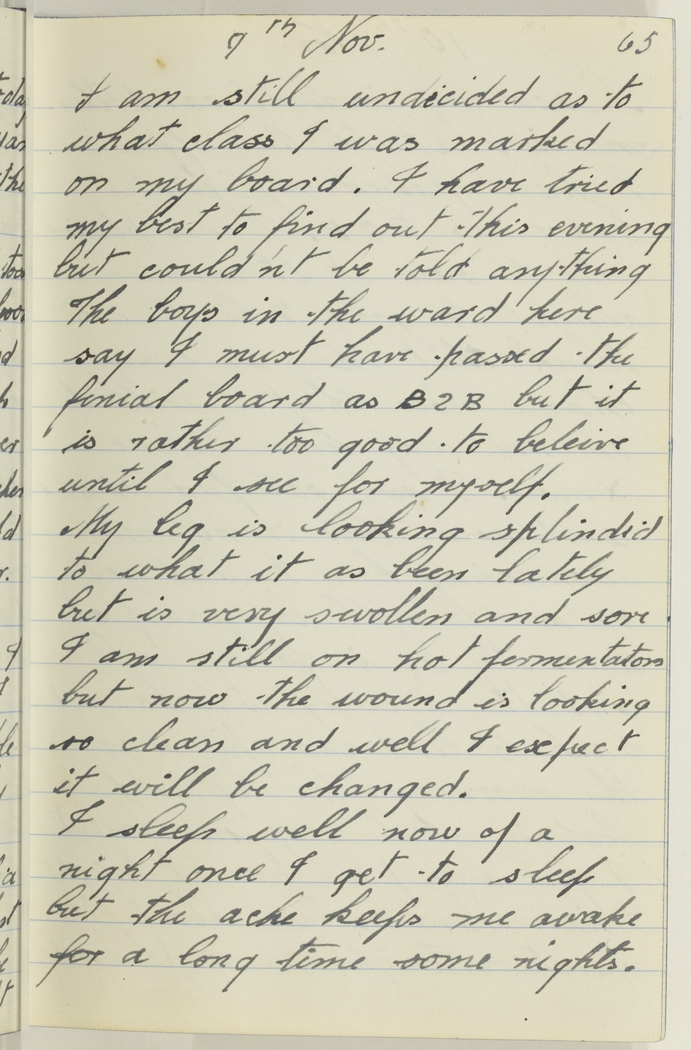 7th Nov. 65
I am still undecided as to
what class I was marked
on my board. I have tried
my best to find out this evening
but could'nt be told anything
The boys in the ward here
say I must have passed the
finial board as B2B but it
is rather too good to beleive
until I see for myself.
My leg is looking splindid
to what it as been lately
but is very swollen and sore.
I am still on hot fermentators
but now the wound is looking
so clean and well I expect
it will be changed.
I sleep well now of a
night once I get to sleep
but the ache keeps me awake
for a long time some nights.